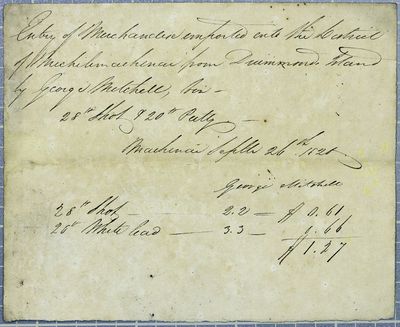 Entry of Merchandise imported into the District
of Michilimackinac from Drummond Island
by George Mitchell, viz -
28 lb Shot & 20 lb Putty -
Mackinac Septbr 26th 1820
George Mitchell
28 lb Shot - 2.2 - $ 0.61
20 lb White lead - 3.3 - 0.66
$ 1.27